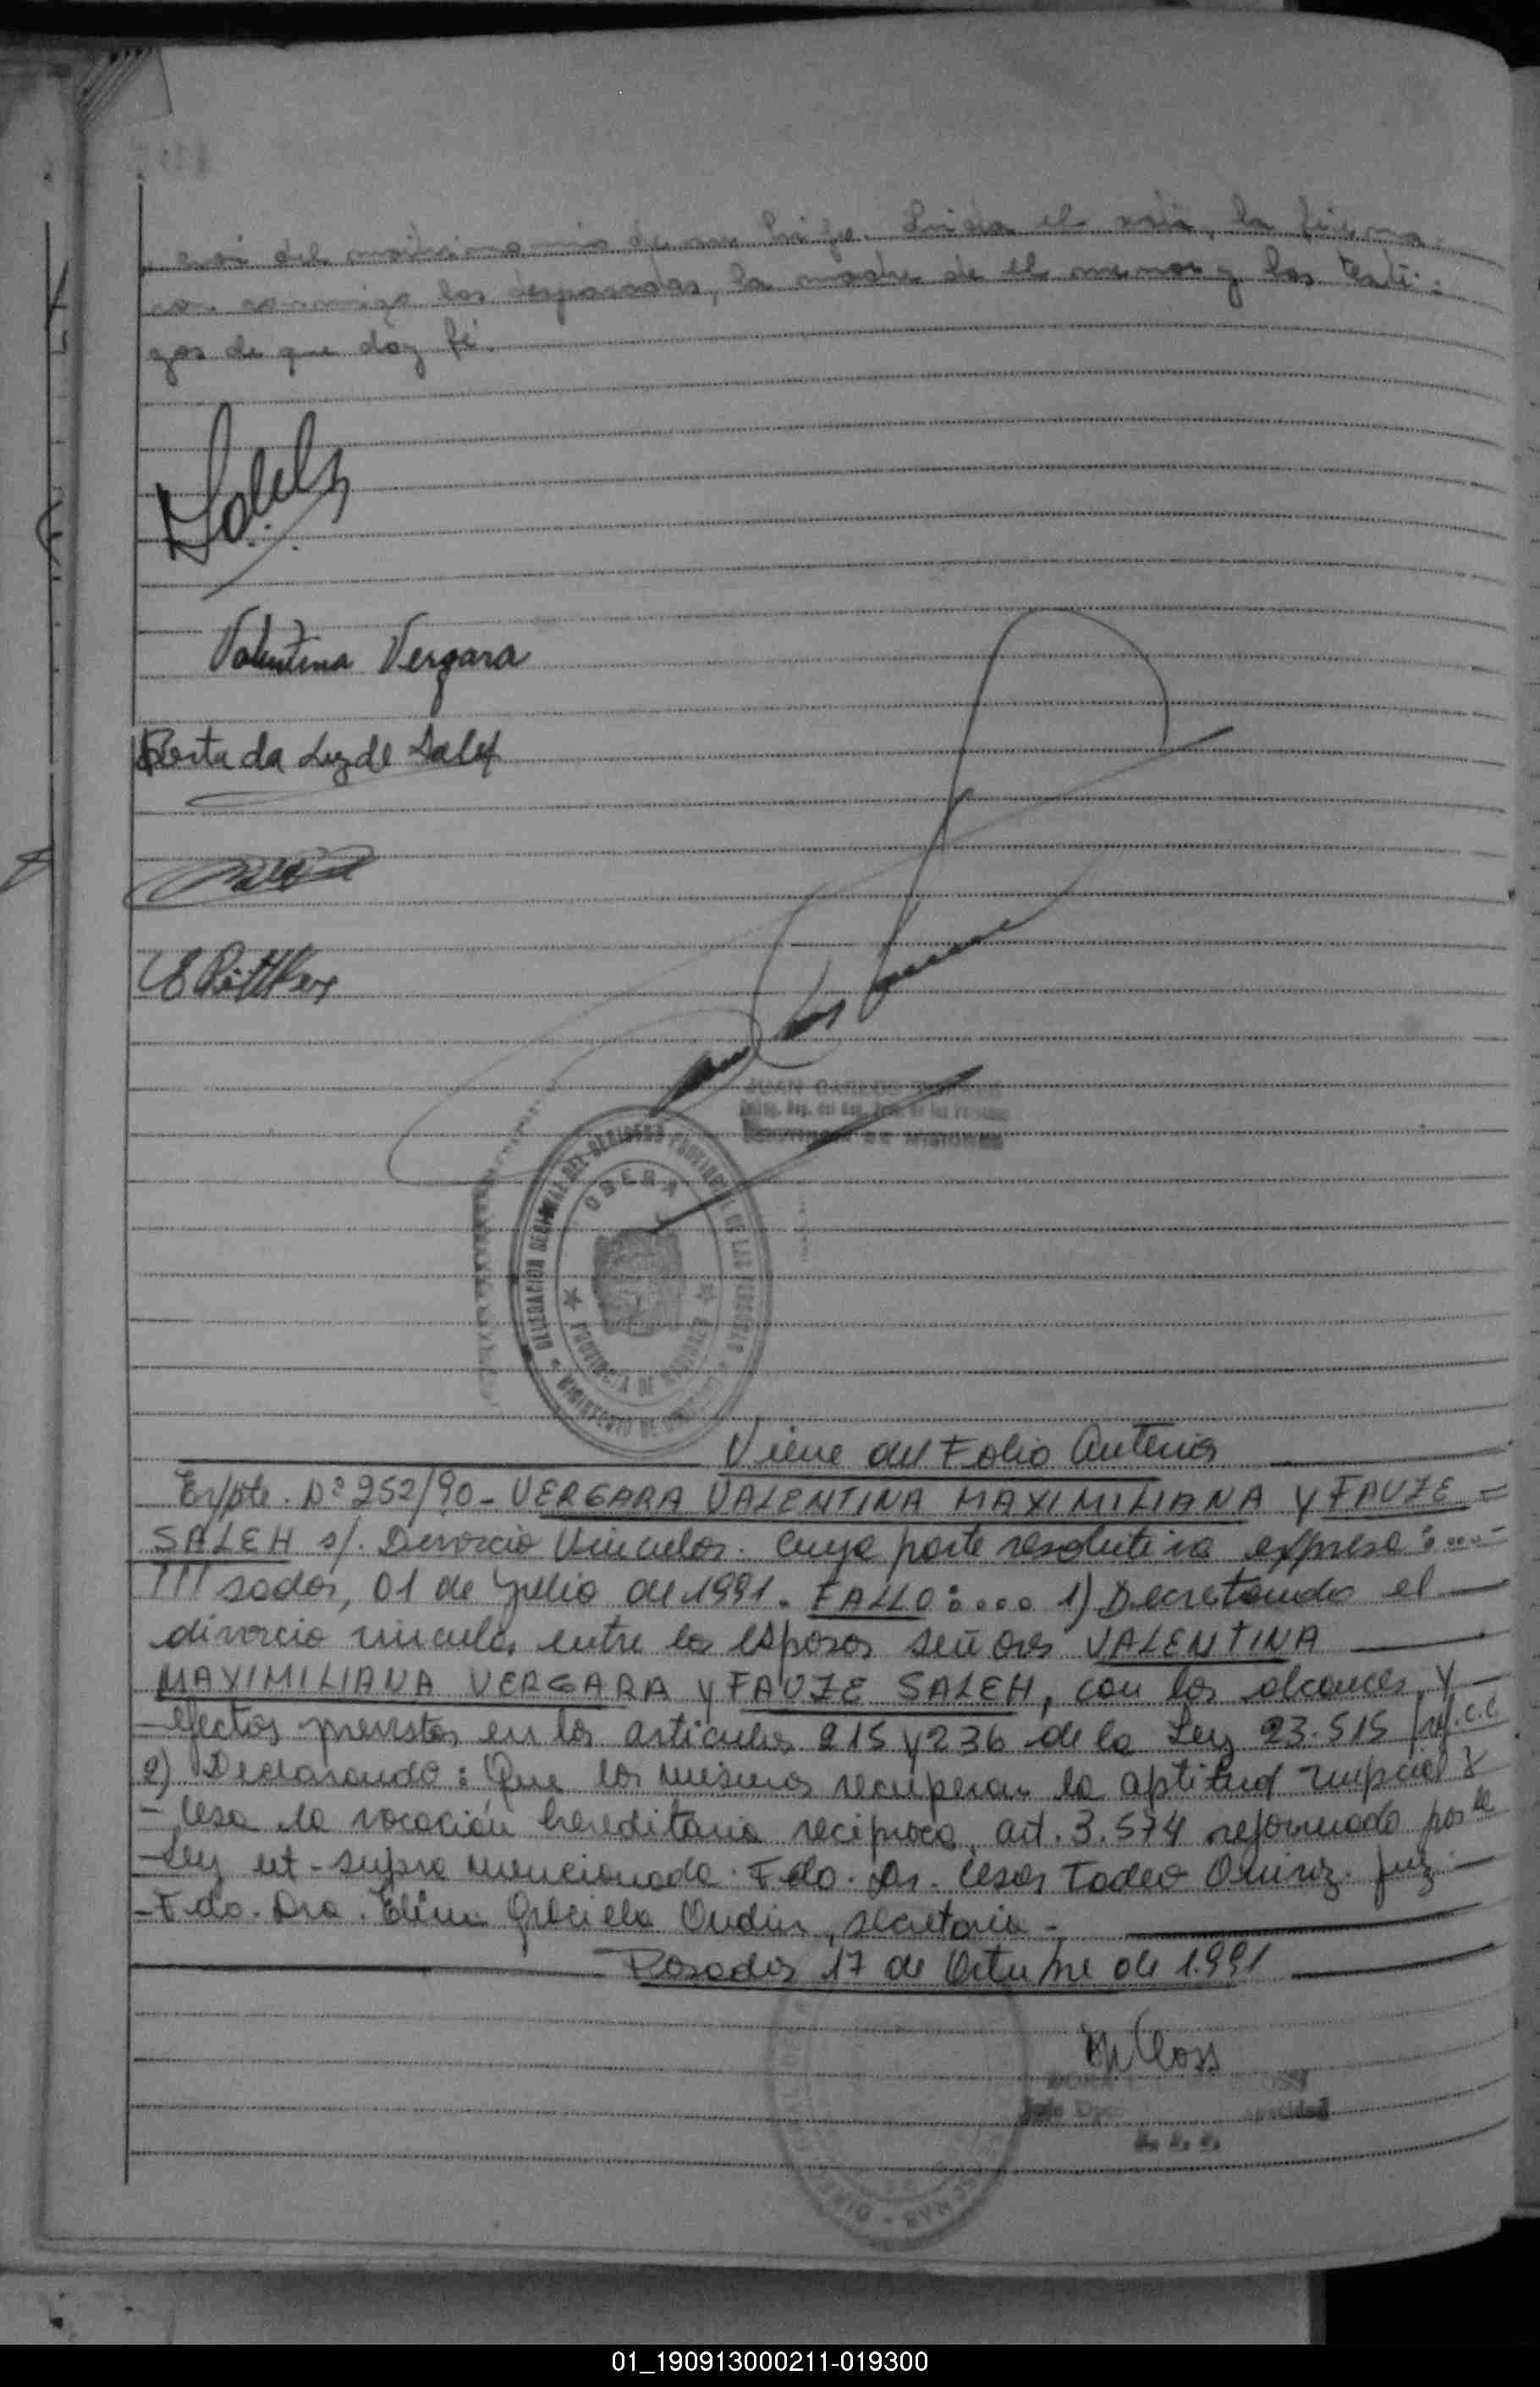 del matrimonio de su hijo. Leida el acta, la firma-
ron conmigo los desposados, la madre de el menor y los testi-
gos de que doy fé.
Saleh
Valentina Vergara
Berta da Luz de Saleh
JUAN CARLOS
PROVINCIA DE MISIONES
DELEGACION REGIONAL DEL REGISTRO PROVINCIAL DE LAS PERSONAS
OBERA
PROVINCIA DE MISIONES
MINISTERIO DE
Viene del Folio Anterior
Expte. Nº 252/90 - VERGARA VALENTINA MAXIMILIANA Y FAUZE =
SALEH s/. Divorcio Vincular. Cuya parte resolutiva expresa:...-
///sadas, 01 de Julio de 1991. FALLO:.... 1) Decretando el
divorcio vincular entre los esposos señores VALENTINA
MAXIMILIANA VERGARA Y FAUZE SALEH, con los alcances y
efectos previstos en los articulos 215 y 236 de la Ley 23.515 /ref.C.C
2) Declarando: Que los mismos recuperan la aptitud nupcial y
- cesa la vocación hereditaria reciproca, art. 3.574 reformado por la
- Ley ut-supra mencionada. Fdo. Dr. Cesar Tadeo Quiroz. Juez.
- Fdo. Dra. Graciela, secretaria -
Posadas 17 de Octubre de 1.991
Closs
01_190913000211-019300